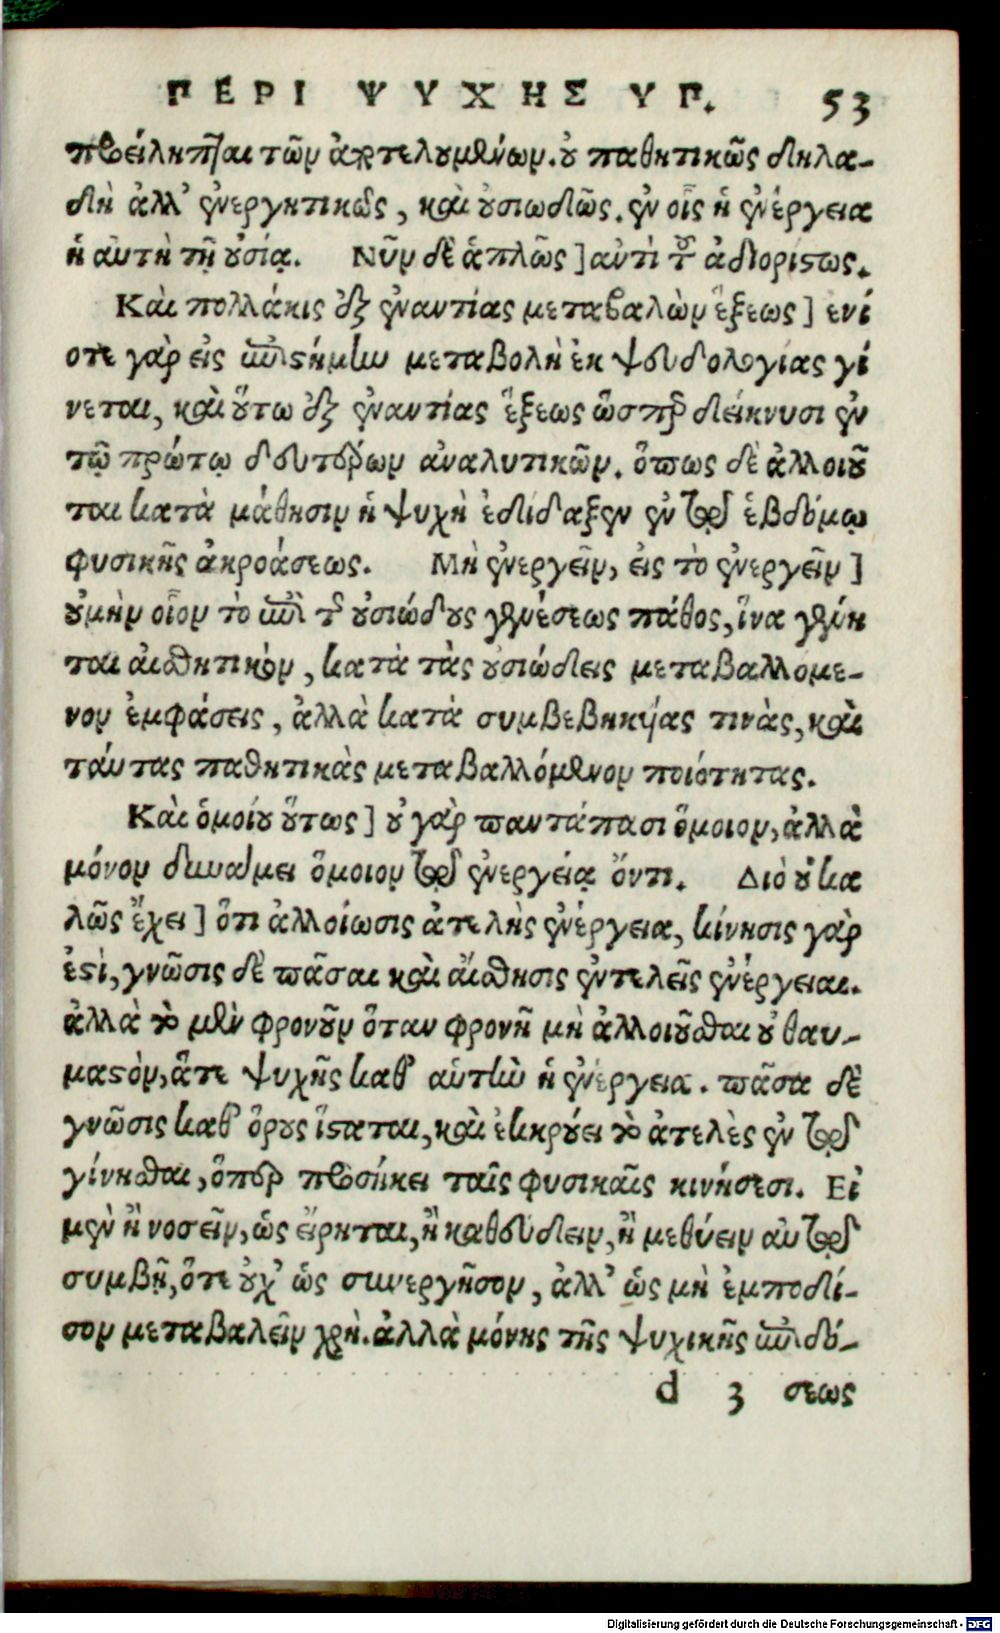 ΠΕΡΙ ΨΥΧΗΣ ΥΠ. 53
προείληπται τῶν ἀποτελουμένων. οὐ παθητικῶς δηλα-
δὴ ἀλλ' ἐνεργητικῶς, καὶ οὐσιωδῶς. ἐν οἷς ἡ ἐνέργεια
ἡ αὐτὴ τῇ οὐσίᾳ. Νῦν δὲ ἁπλῶς] ἀντὶ τοῦ ἀδιορίστως.
Καὶ πολλάκις ἐξ ἐναντίας μεταβαλὼν ἕξεως] ενί
οτε γὰρ εἰς ἐπιστήμην μεταβολὴ ἐκ ψευδολογίας γί
νεται, καὶ οὕτω ἐξ ἐναντίας ἕξεως ὥσπερ δείκνυσι ἐν
τῷ πρώτῳ δευτέρων ἀναλυτικῶν. ὅπως δὲ ἀλλοιοῦ
ται κατὰ μάθησιν ἡ ψυχὴ ἐδίδαξεν ἐν τῷ ἑβδόμῳ
φυσικῆς ἀκροάσεως. Μὴ ἐνεργεῖν, εἰς τὸ ἐνεργεῖν]
οὐμὴν οἷον τὸ ἐπὶ τῆς οὐσιώδους γενέσεως πάθος, ἵνα γένη
ται αἰσθητικὸν, κατὰ τὰς οὐσιώδεις μεταβαλλομε-
νον ἐμφάσεις, ἀλλὰ κατὰ συμβεβηκυίας τινὰς, καὶ
ταύτας παθητικὰς μεταβαλλόμενον ποιότητας.
Καὶ ὁμοίου ὄντως] οὐ γὰρ παντάπασι ὅμοιον, ἀλλὰ
μόνον δυνάμει ὅμοιον τῷ ἐνεργείᾳ ὄντι. Διὸ οὐ κα
λῶς ἔχει] ὅτι ἀλλοίωσις ἀτελὴς ἐνέργεια, κίνησις γὰρ
ἐστὶ, γνῶσις δὲ πᾶσαι καὶ αἴσθησις ἐντελεῖς ἐνέργειαι.
ἀλλὰ τὸ μὲν φρονοῦν ὅταν φρονῇ μὴ ἀλλοιοῦσθαι οὐ θαυ-
μαστὸν, ἅτε ψυχῆς καθ' αὑτὴν ἡ ἐνέργεια. πᾶσα δὲ
γνῶσις καθ' ὅρους ἵσταται, καὶ ἐκκρούει τὸ ἀτελὲς ἐν τῷ
γίνεσθαι, ὅπερ προσήκει ταῖς φυσικαῖς κινήσεσι. Εἰ
μὲν ἢ νοσεῖν, ὡς εἴρηται, ἢ καθεύδειν, ἢ μεθύειν αὐτῷ
συμβῇ, ὅτε οὐχ' ὡς συνεργῆσον, ἀλλ' ὡς μὴ ἐμποδί-
σον μεταβαλεῖν χρὴ. ἀλλὰ μόνης τῆς ψυχικῆς ἐπιδό-
d 3 σεως
Digitalisierung gefördert durch die Deutsche Forschungsgemeinschaft - DFG